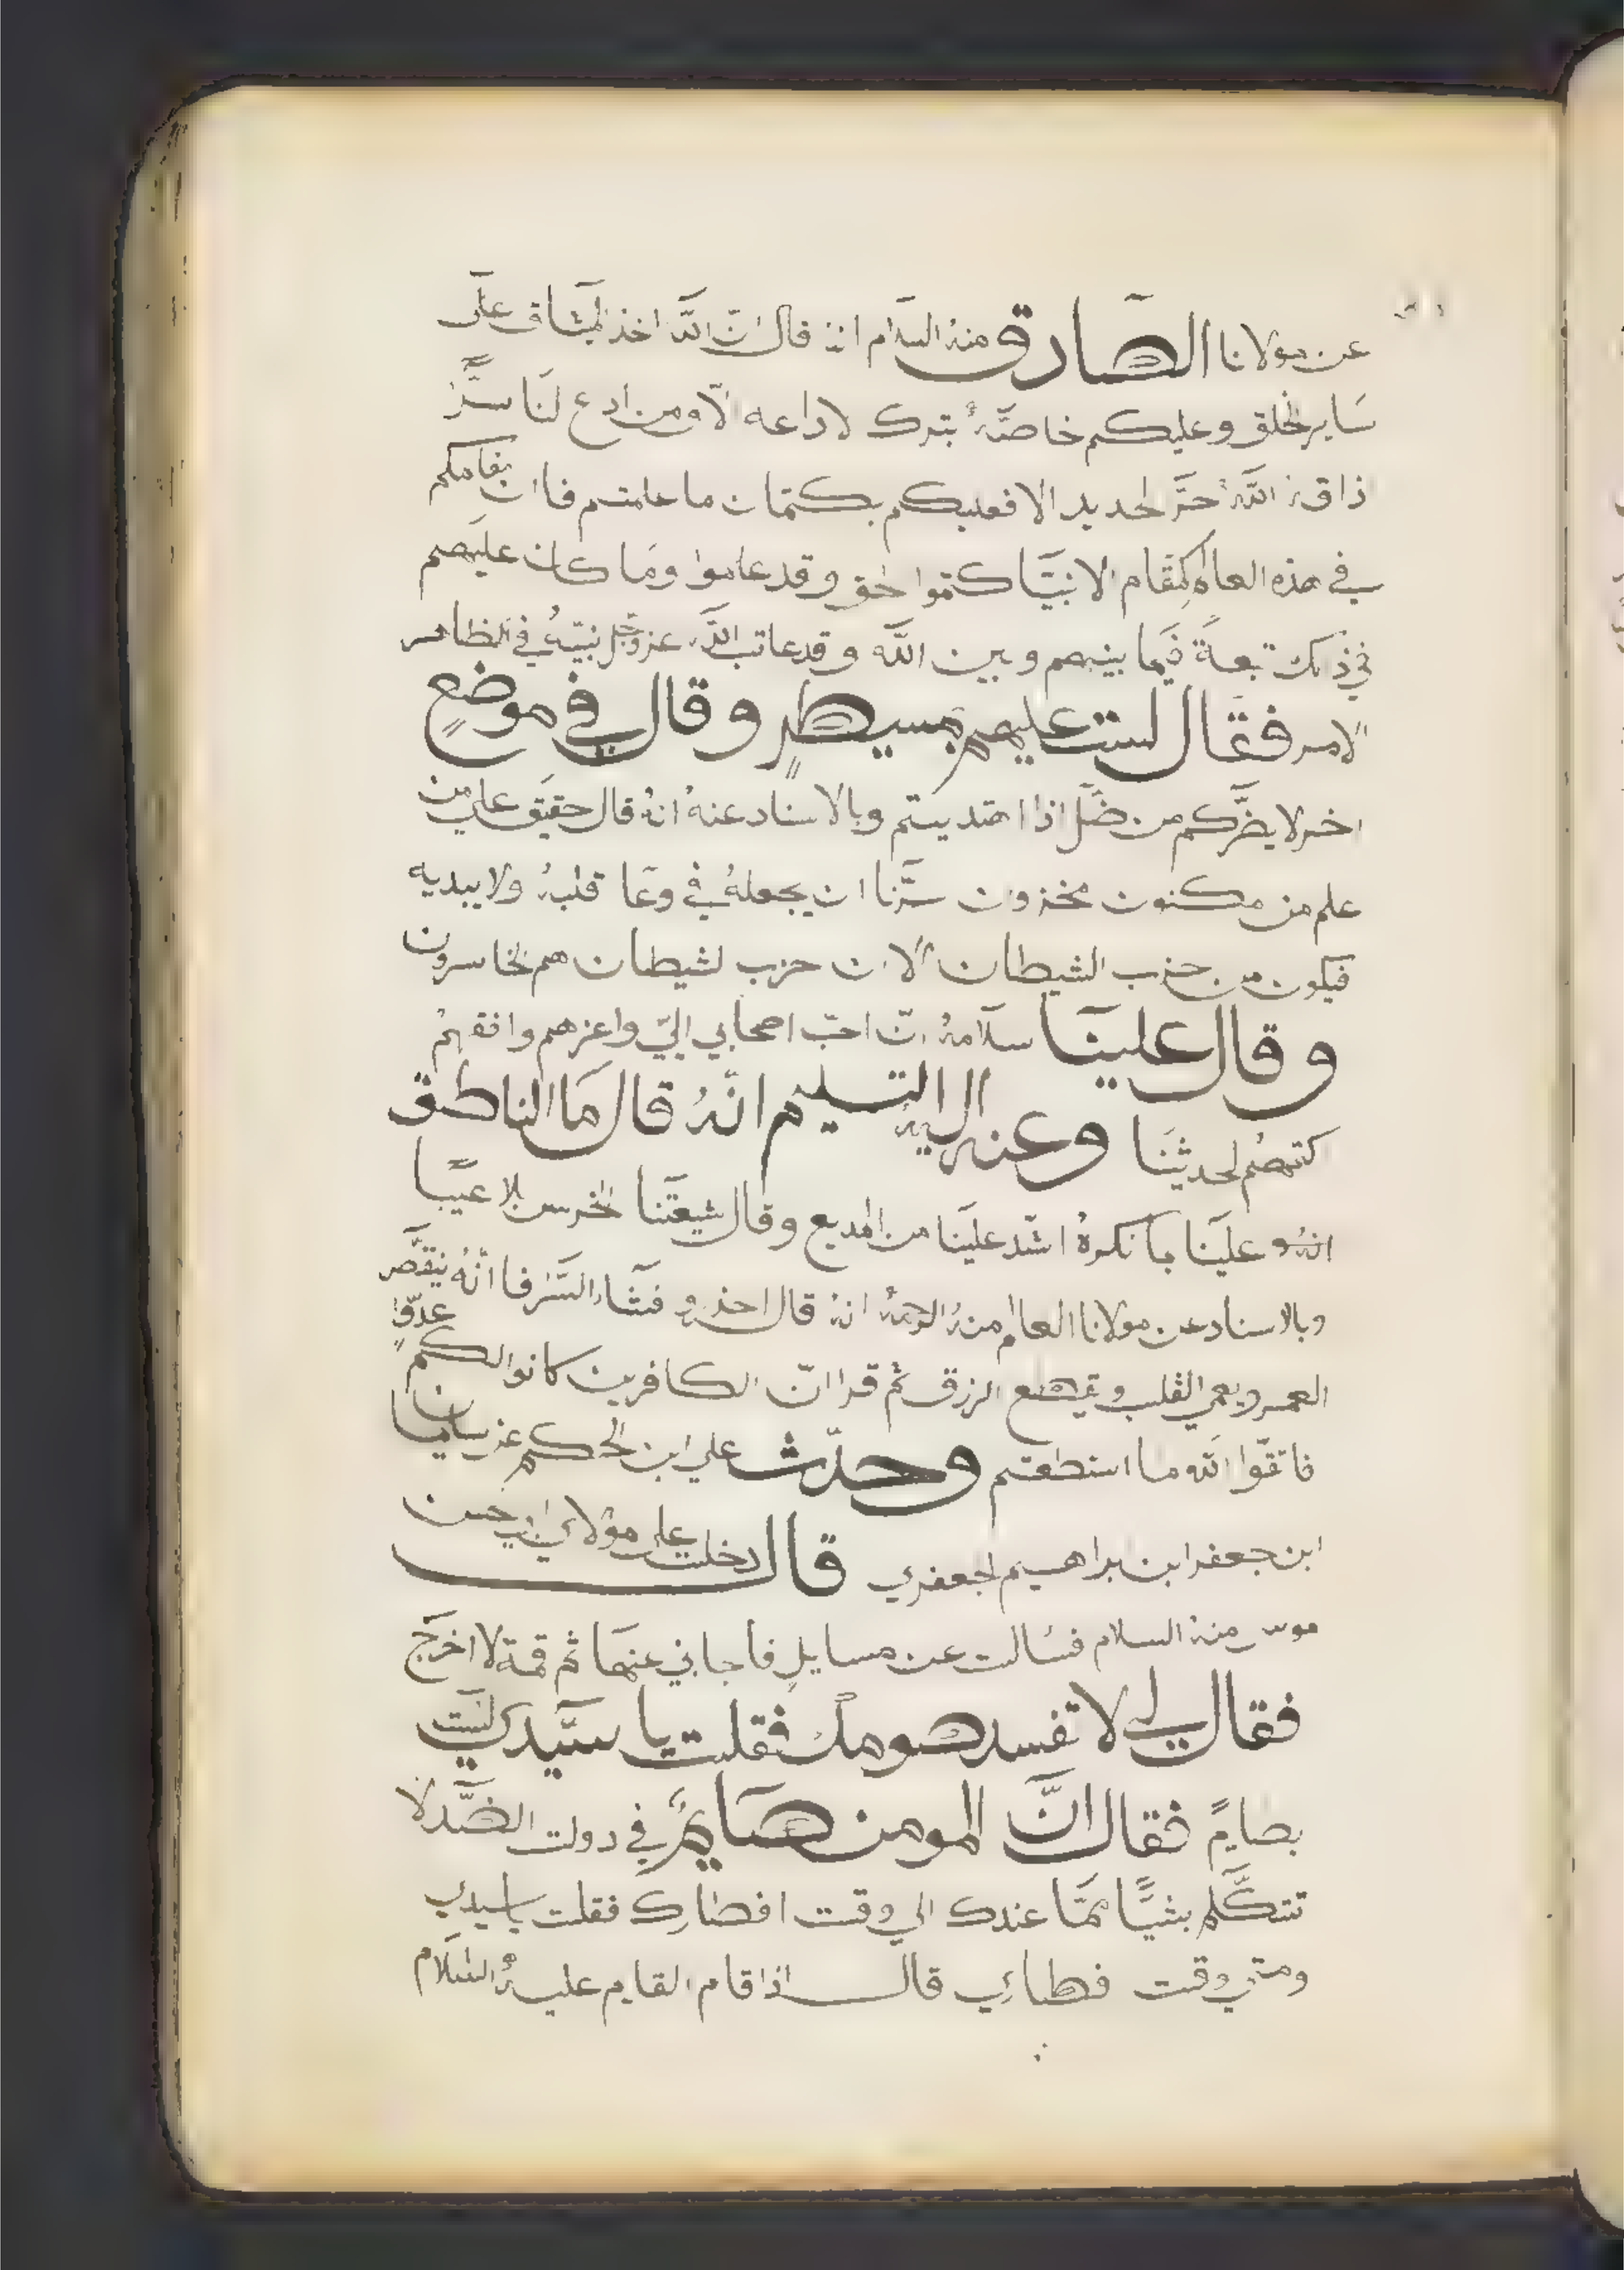 عن مولانا الصَادق منهُ السلام انهُ قال انّ اللّه اخذ الميثاق على
سَاير الخلق وعليكم خاصَّةً بترك لاداعه الا ومن ادع لنَا سرًّ
ذاقهُ اللّهُ حرَّ لحديد الا فعليكم بكتمان ما علمتم فاان مقامكم
في هذه العالم كمقام الانبيَّا كتموا لحق وقد عاموا ومَا كان عليهم
في ذلك تبعةَ فيما بينهم وبين اللّه وقد عاتب اللّه عز وجل نبيّهُ في الظاهر
الامر فقال لست عليهم بمسيطرٍ وقال في موضعٍ
اخر لا يضرَّكم من ضلَّ اذا اهتديتم وبالاسناد عنهُ انهُ قال حقيق على من
علم من مكنون مخزون سرَّنا ان يجعلهُ في وعَا قلبهُ ولا يبديه
فيكون من حزب الشيطان الا ان حزب لشيطان هم لخاسرون
وقال علينَا سلامهُ انّ احبّ اصحابي اليّ واعزهم وافقهم
كتمهُم لحديثنَا وعنه اليه التسليم انّهُ قال مَا الناطق
علينَا بما نكرهُ اشد علينَا من المديع وقال شيعتَنا الخرس بلا عيبًا
وبالاسناد عن مولانا العالم منهُ الرحمهُ انهُ قال احذرو فشَاء السَّر فاانّهُ ينقَّص
العمر ويعمي القلب ويقطع الرزق ثم قرا انّ الكافرين كانوا لكم عدوٍّ
فاتقّوا اللّه ما استطعتم وحدّث علي ابن الحكم عن سليمان
ابن جعفر ابن ابراهيم لجعفري قال دخلت على مولاي ابي حسن
موسى منهُ السلام فسُالت عن مسايلٍ فاجابني عنهَا ثم قمة لاخرَج
فقال لي لا تفسد صومك فقلت يا سيّدي لسَت
بصايمً فقال انَّ المومن صَايمٌ في دولت الضَّد لا
تتكلَّم بشيًّا ممَّا عندك الى وقت افطارك فقلت يا سيدي
ومتى وقت فطاري قال اذا قام القايم عليهُ السَلام